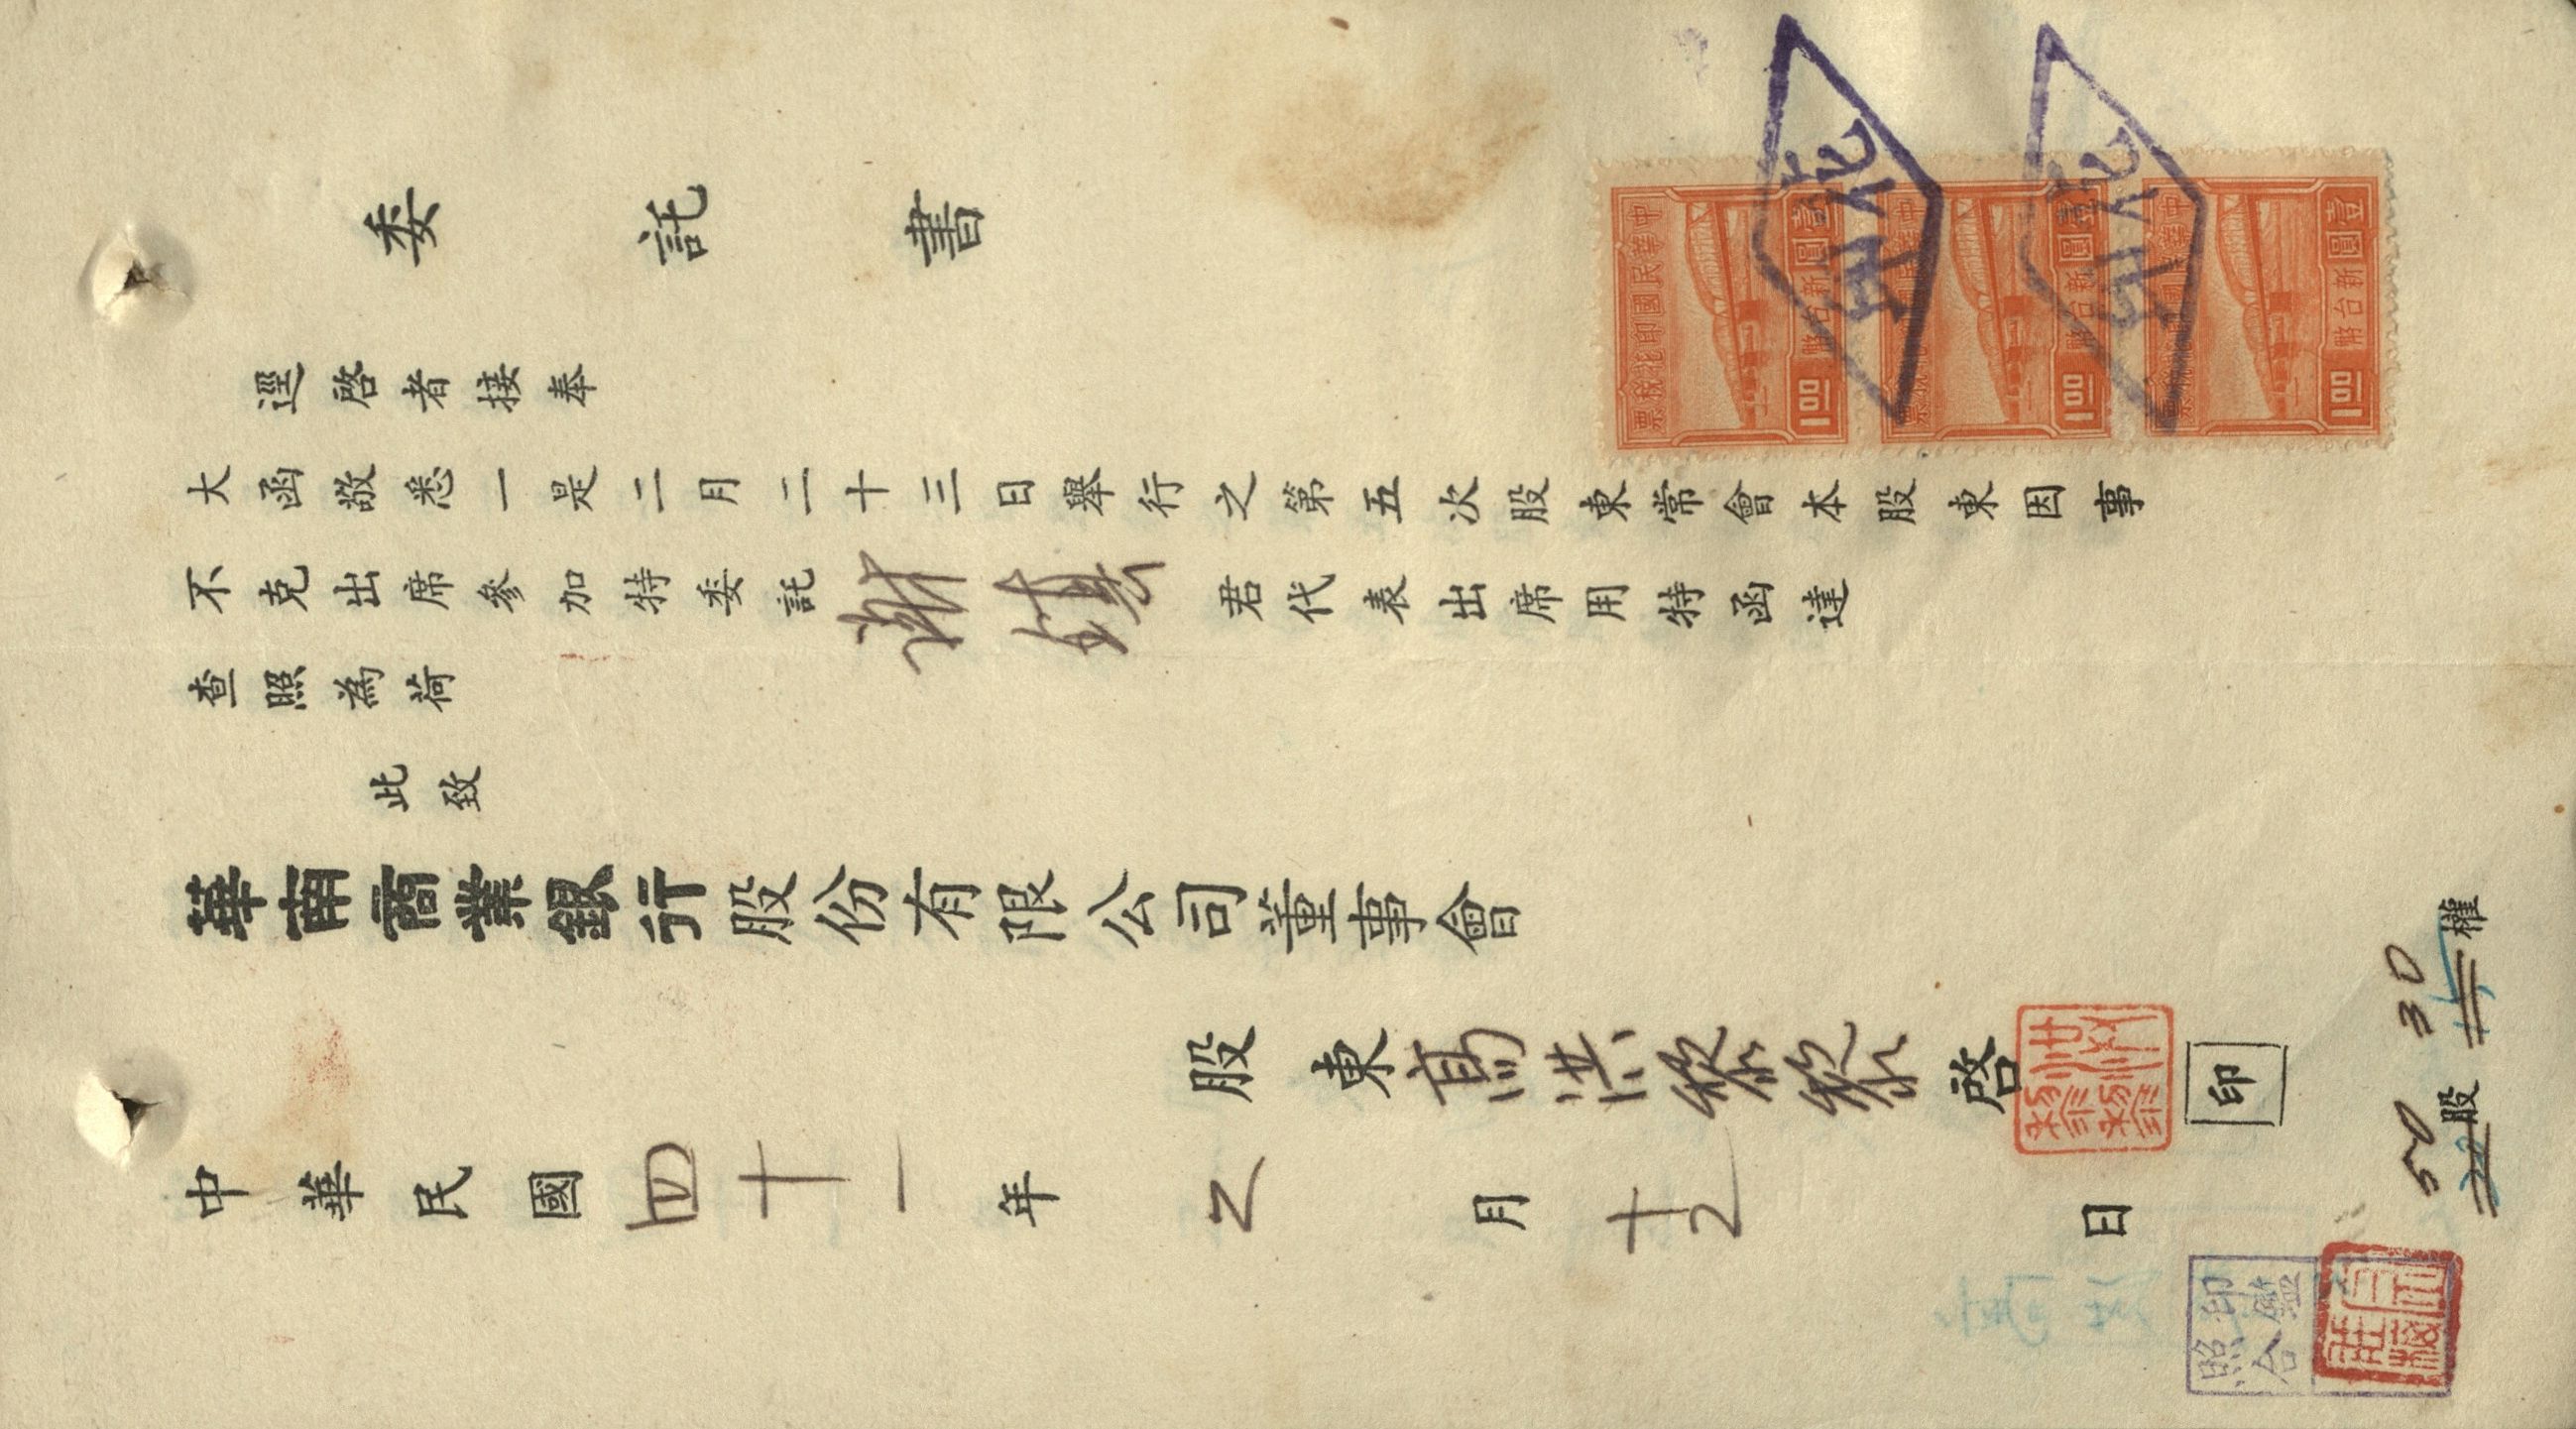 委託書
逕啓者接奉
大函敬悉一是二月二十三日舉行之第五次股東常會本股東因事
不克出席參加特委託謝鎮君代表出席用特函達
查照為荷
此致
華南商業銀行股份有限公司董事會
股東高洪黎黎啓 印
50股 30權
中華民國四十一年2月十2日
中華民國印花稅票
壹圓新台幣
1.00
中華民國印花稅票
壹圓新台幣
1.00
中華民國印花稅票
壹圓新台幣
1.00
印鑑
照合